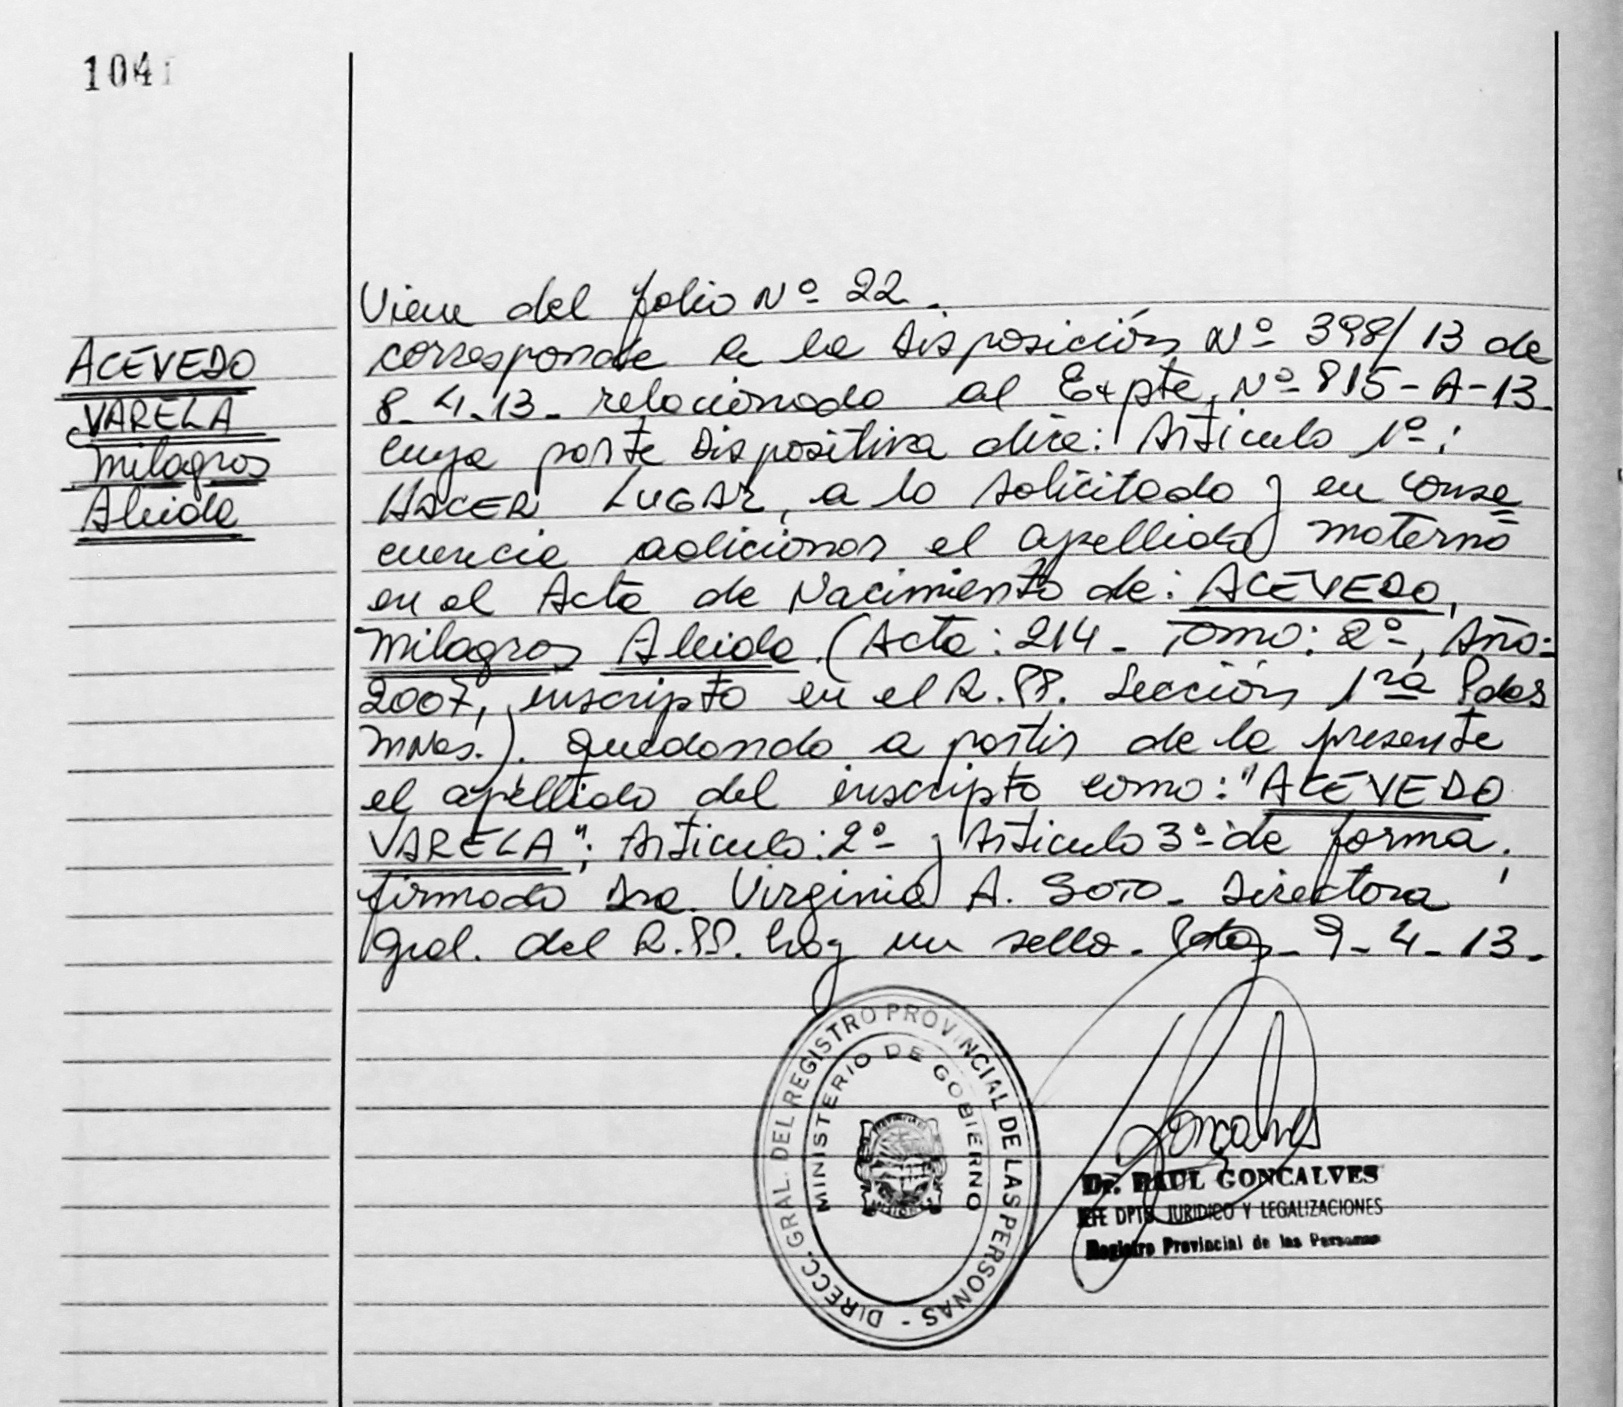 1041
Viene del folio Nº 22.
ACEVEDO
VARELA
Milagros
Aleida
corresponde a la Disposición Nº 398/13 de
8-4-13- relacionado al Expte. Nº 815-A-13
cuya parte Dispositiva dice: Articulo 1º:
HACER LUGAR, a lo solicitado y en conse
cuencia adicionar el apellido materno
en el Acta de Nacimiento de: ACEVEDO,
Milagros Aleida (Acta: 214- Tomo: 2º, Año:
2007, inscripto en el R.PP. Sección 1ra Pdas
MNes.). quedando a partir de la presente
el apellido del inscripto como: "ACEVEDO
VARELA"; Articulo: 2º y Articulo 3º de forma.
firmado Dra. Virginia A. SOTO- Directora
Gral. del R.PP. hay un sello. Pdas- 9-4-13-
DIRECC. GRAL. DEL REGISTRO PROVINCIAL DE LAS PERSONAS -
MINISTERIO DE GOBIERNO
Dr. RAUL GONCALVES
JEFE DPTO. JURIDICO Y LEGALIZACIONES
Registro Provincial de las Personas